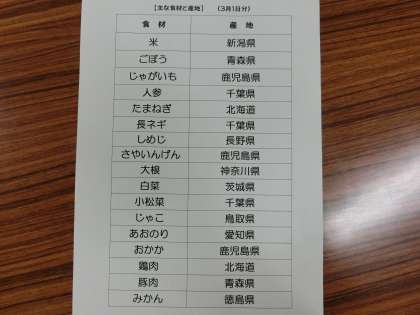 【主な食材と産地】 （3月1日分）
食材 産地
米 新潟県
ごぼう 青森県
じゃがいも 鹿児島県
人参 千葉県
たまねぎ 北海道
長ネギ 千葉県
しめじ 長野県
さやいんげん 鹿児島県
大根 神奈川県
白菜 茨城県
小松菜 千葉県
じゃこ 鳥取県
あおのり 愛知県
おかか 鹿児島県
鶏肉 北海道
豚肉 青森県
みかん 徳島県